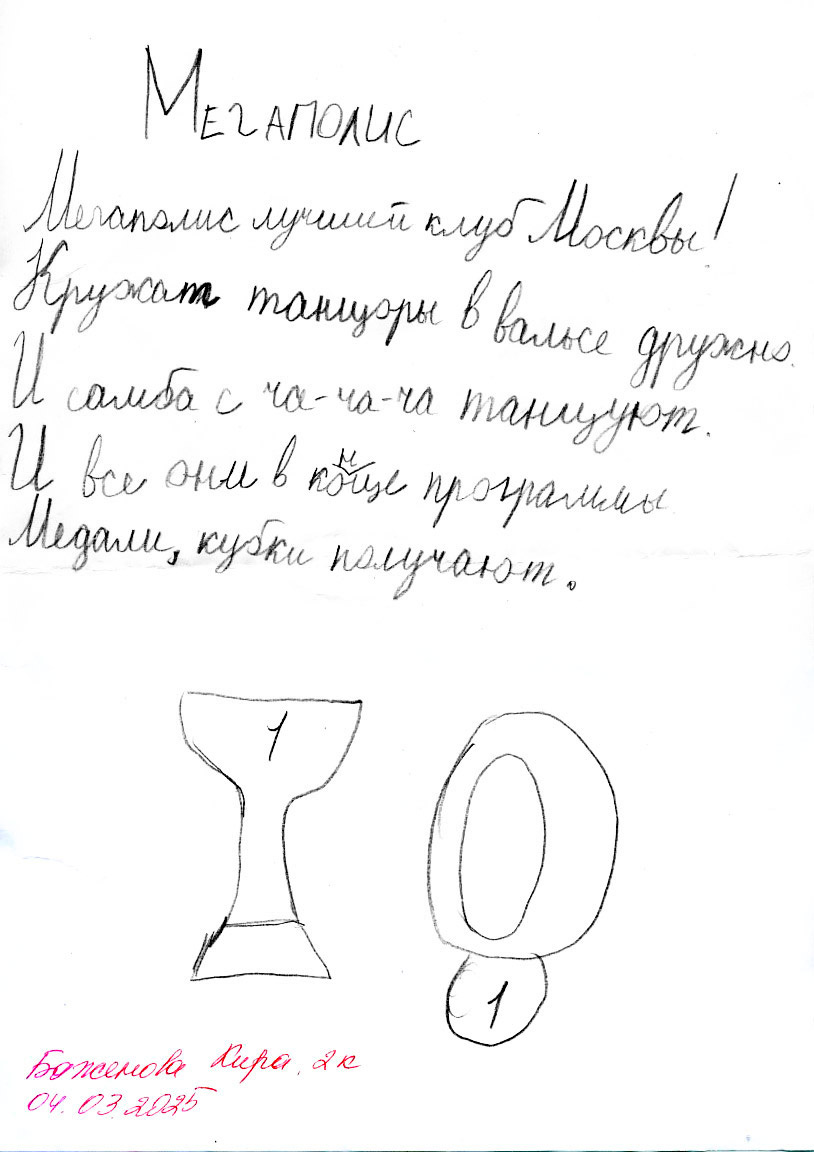 Мегаполис
Мегаполис лучший клуб Москвы!
Кружат танцоры в вальсе дружно.
И самба с ча-ча-ча танцуют.
И все они в конце программы
Медали, кубки получают.
1
1
Баженова Кира, 2к
04.03.2025